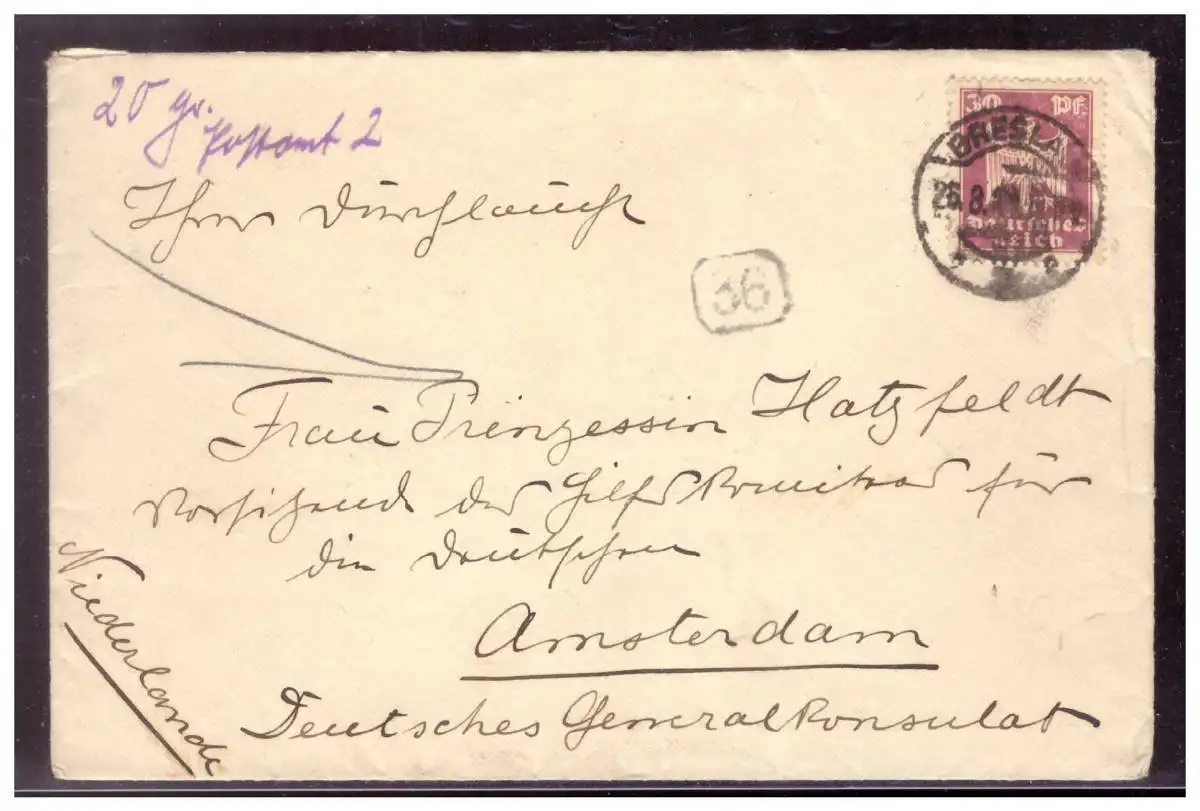 20 gr.
Postamt 2
30 Pf.
BRESLAU
26.8.
Deutsches
Reich
Ihrer Durchlaucht
36
Frau Prinzessin Hatzfeldt
Vorsitzende des Hilfskomitees für
die Deutschen
Amsterdam
Deutsches Generalkonsulat
Niederlande